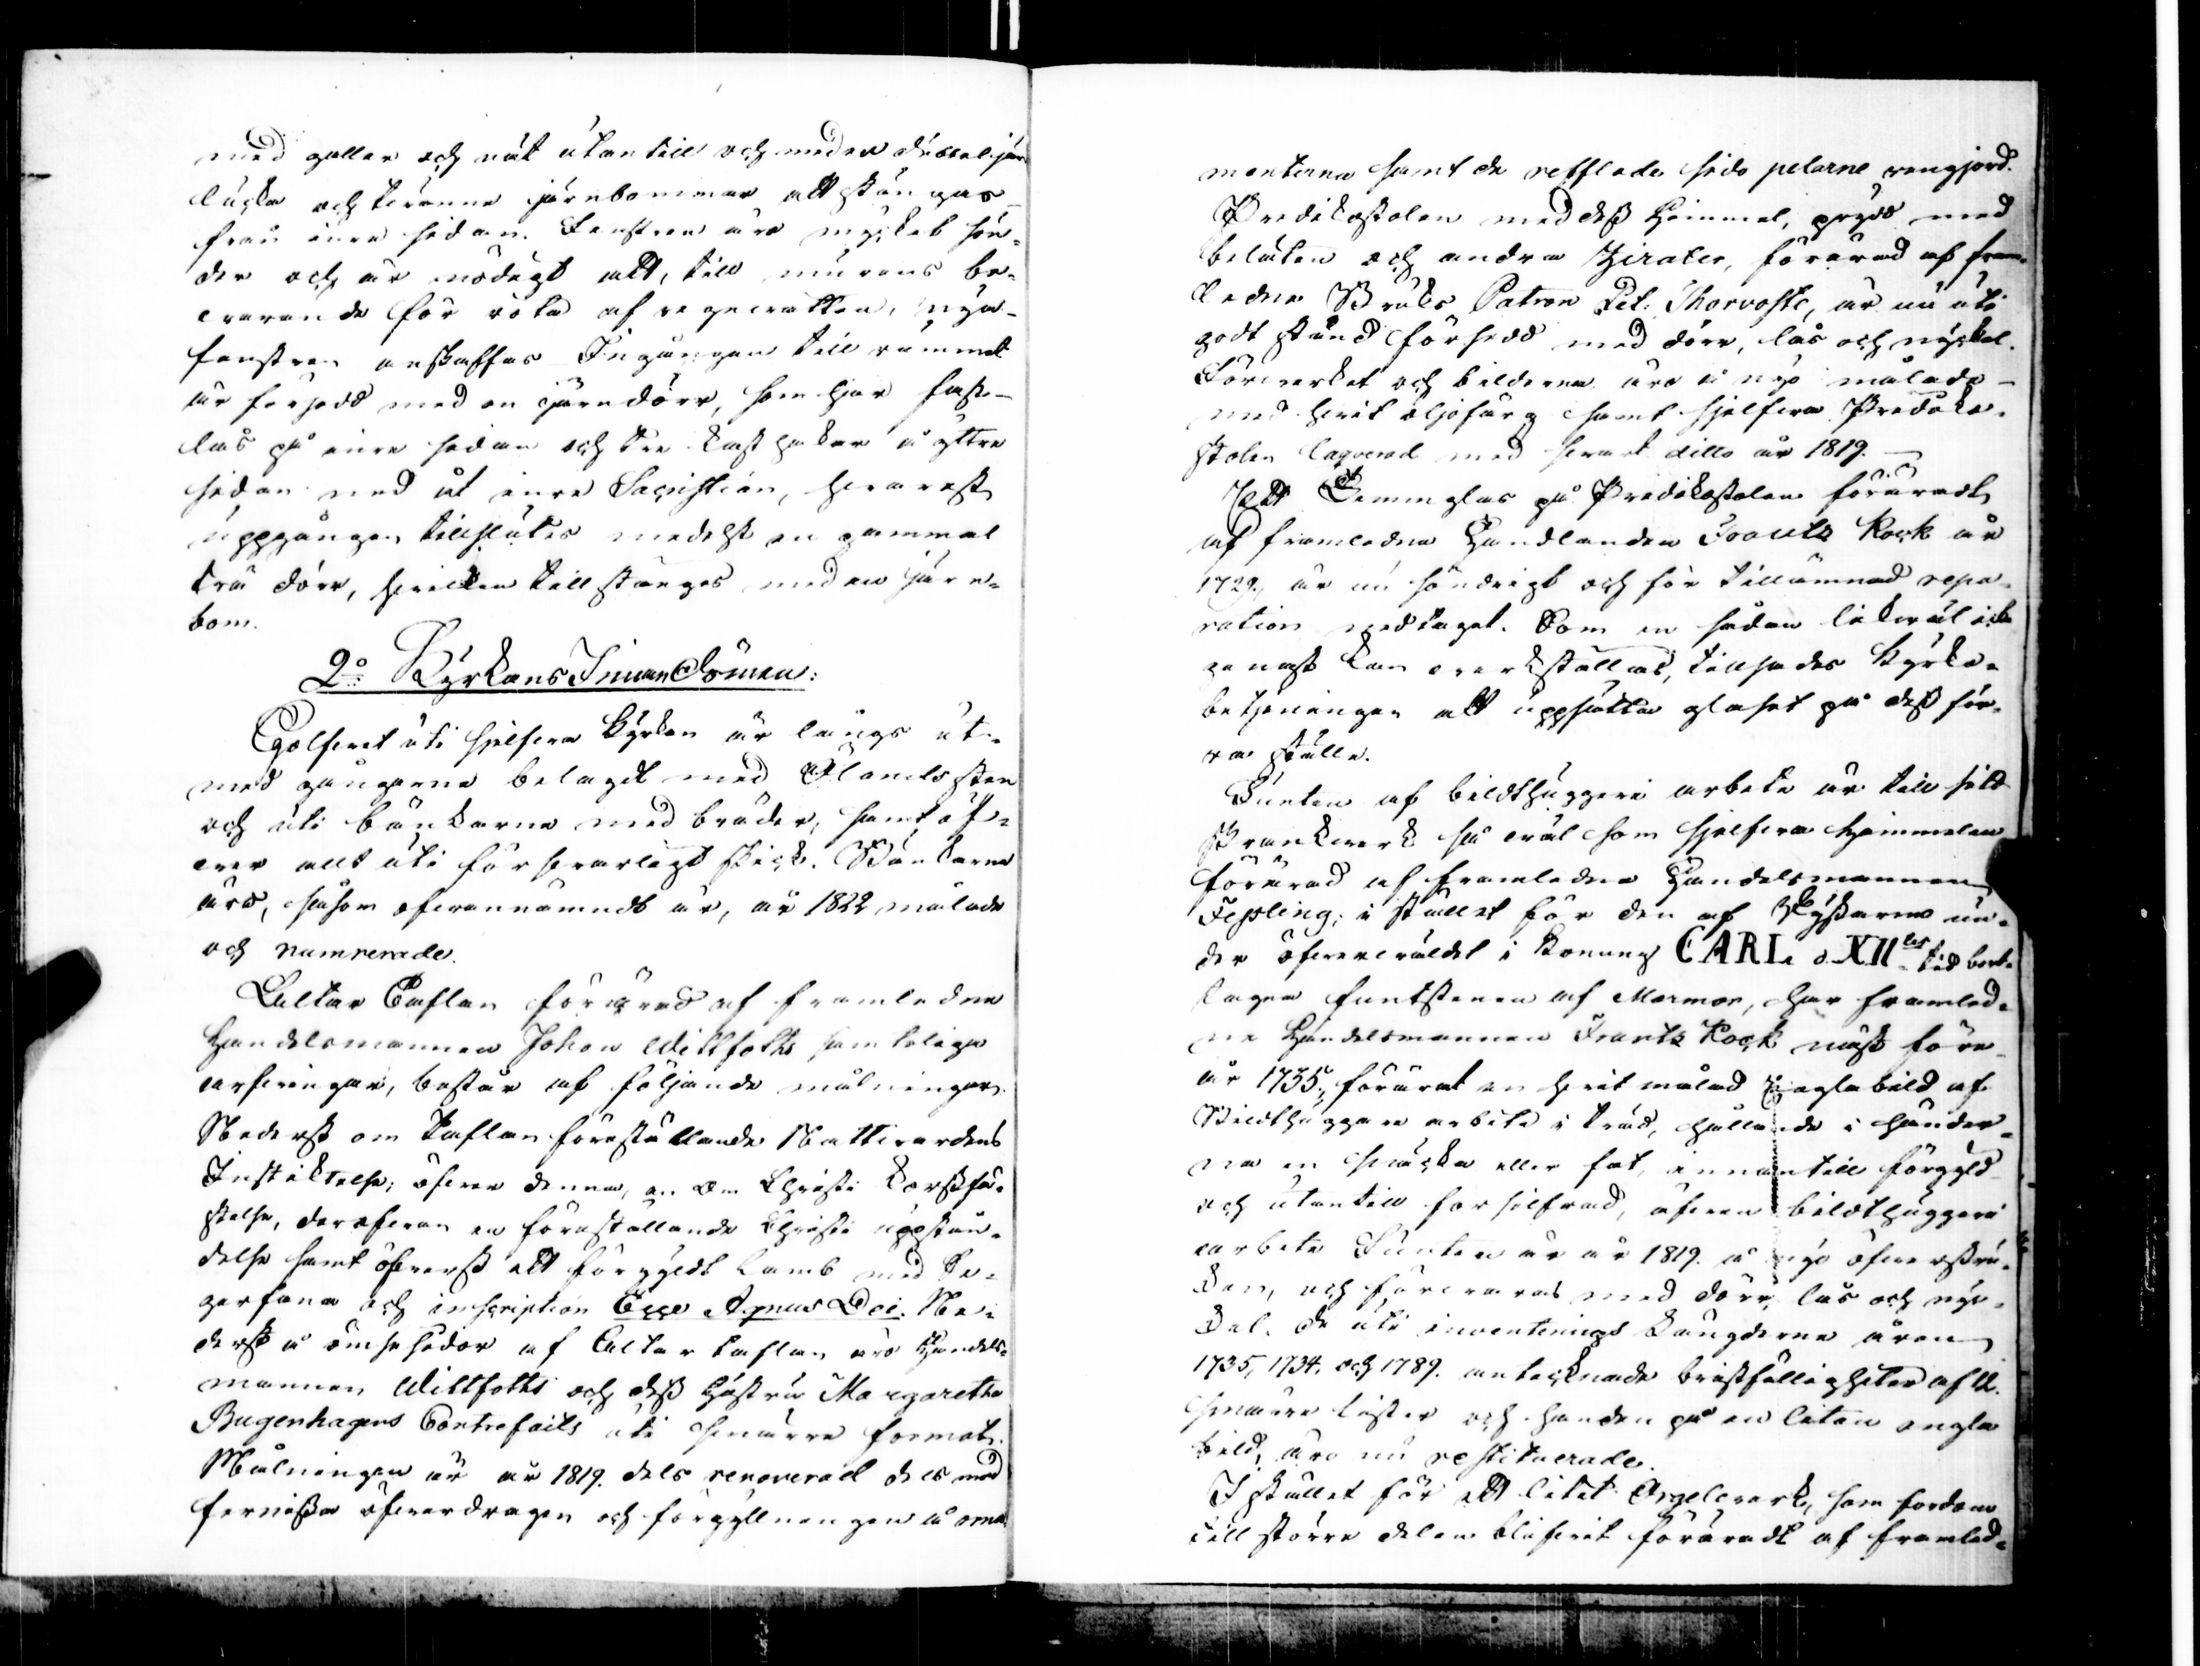 med galler och nät utantill och med en dubbel järn
lucka och tvenne järnbommar att stängas
från inre sidan. Fenstren äro mycket sön-
der och är nödigt att, till murens be-
varande för röta af regnvatten, nya
fenstren anskaffas Ingången till rummet
är försedd med en järndörr, som har fast
lås på inre sidan och tre kasthakar å yttre
sidan ned åt inre Sacristian, hvarest
uppgången tillslutes medelst en gammal
trä dörr, hvilken tillstänges med en järn-
bom.
2:o Kyrkans Innandömen:
Golfvet uti sjelfva Kyrkan är längs ut-
med gångarna belagdt med Ölandssten
och uti bänkarna med bräder, samt öf-
ver allt uti försvarligt skick. Bänkarna
äro, såsom ofvannämndt är, år 1822 målade
och numrerade.
Altar Taflan förärad af framledne
Handelsmannen Johan Wittfoths samtelige
arfvingar, består af följande målningar.
Nederst om taflan föreställande Nattvardens
Instiktelse; öfver denna, en om Christi korsfä-
stelse, derofvan en föreställande Christi uppstån-
delse samt öfverst ett förgyldt Lamb med Se-
gerfana och inscription Ecce Agnus Dei. Ne-
derst å ömse sidor af Altar taflan äro Handels-
mannen Wittfoths och dess Hustru Margaretha
Bugenhagens Contrefaits uti smärre format.
Målningen är år 1819. dels renoverad dels med
fernissa öfverdragen och förgyllningen å orna-
menterna samt de refflade sido pelarne rengjord.
Predikostolen med dess Himmel, prydd med
beläten och andra Zirater, förärad af fram-
ledne Bruks Patron Pet: Thorvoste, är nu uti
godt stånd försedd med dörr, lås och nyckel.
Törverket och bilderna äro å nyo målade
med hvit oljofärg samt sjelfva Predika-
stolen laqverad med svart ditto år 1819.
Ett Timmglas på Predikostolen föräradt
af framledne Handlanden Frantz Rock år
1729, är nu söndrigt och för tillämnad repa-
ration nedtaget. Som en sådan likväl icke
genast kan verkställas, tillsades Kyrko-
betjeningen att uppsätta glaset på dess för-
ra ställe.
Funten af bildthuggeri arbete är till sitt
skrankverk så väl som sjelfva Himmelen
förärad af framledne Handelsmannen
Jesling; i stället för den af Ryssarne un-
der öfverväldet i Konung CARL d. XII:tes tid bort-
tagna funtstenen af Marmor, har framled-
ne Handelsmannen Frantz Rock näst före
år 1735, förärat en hvit målad Englabild af
Bildthuggare arbete i träd, hållande i händer-
na en snäcka eller fat, innantill förgyld
och utantill försilfrad, äfven bildthuggeri
arbete Funten är år 1819. å nyo öfverstru-
ken, och förvaras med dörr, lås och nyc-
kel. De uti inventerings längderna åren
1735, 1734, och 1789. antecknade bristfälligheter af 12.
smärre lister och handen på en liten engla
bild, äro nu restituerade.
I stället för ett litet Orgelverk, som fordom
till större delen blifvit föräradt af framled-